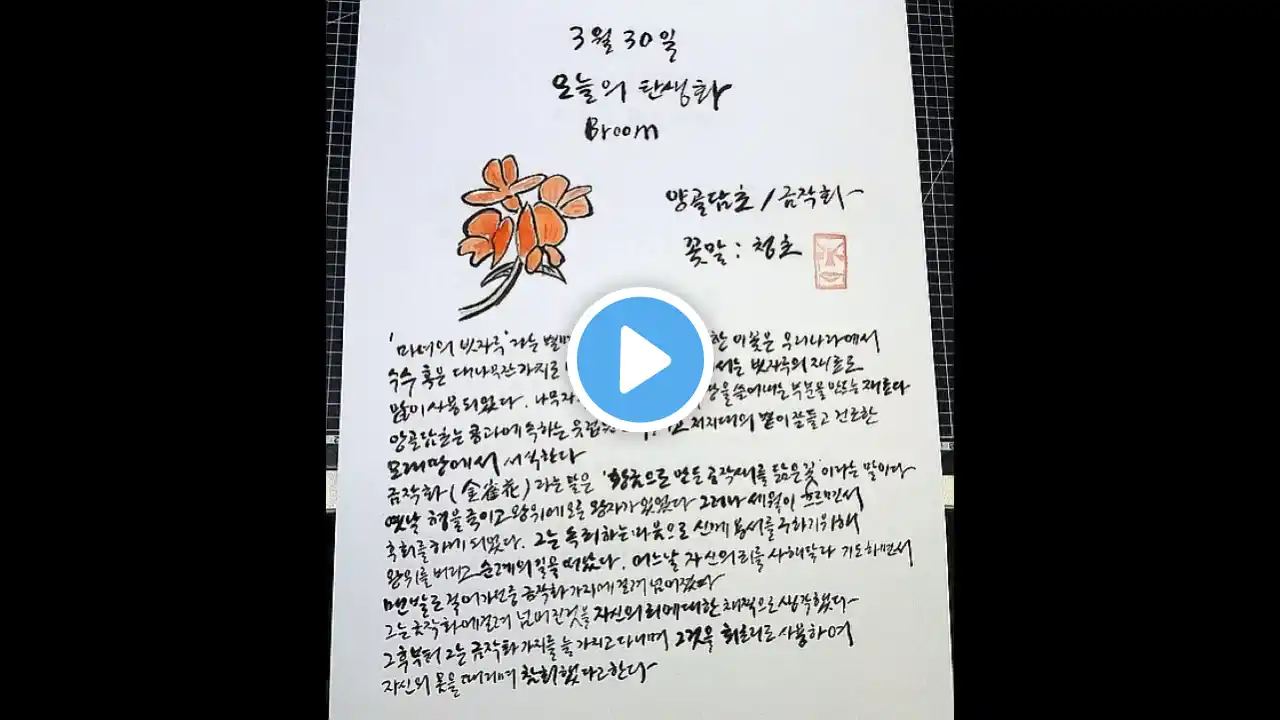 3월 30일
오늘의 탄생화
Broom
양골담초 / 금작화
꽃말 : 청초
'마녀의 빗자루'라는 한 이 꽃은 우리나라에서
수수 혹은 대나무 잔가지로 빗자루의 재료로
많이 사용되었다. 쓸어내는 부분을 만드는 재료다
양골담초는 콩과에 속하는 저지대의 볕이 잘들고 건조한
모래땅에서 서식한다
금작화(金雀花)라는 말은 '황금으로 만든 금작새를 닮은 꽃'이라는 말이다
옛날 형을 죽이고 왕위에 오른 왕자가 있었다 그러나 세월이 흐르면서
후회를 하게 되었다. 그는 속죄하는 마음으로 신께 용서를 구하기위해
왕위를 버리고 순례의 길을 떠났다. 어느날 자신의 죄를 사해달라 기도하면서
맨발로 걸어가던중 금작화 가지에 걸려 넘어졌다
그는 금작화에 걸려 넘어진것을 자신의 죄에 대한 채찍으로 생각했다
그후부터 그는 금작화 가지를 늘 가지고 다니며 그것을 회초리로 사용하여
자신의 몸을 때리며 참회했다고 한다